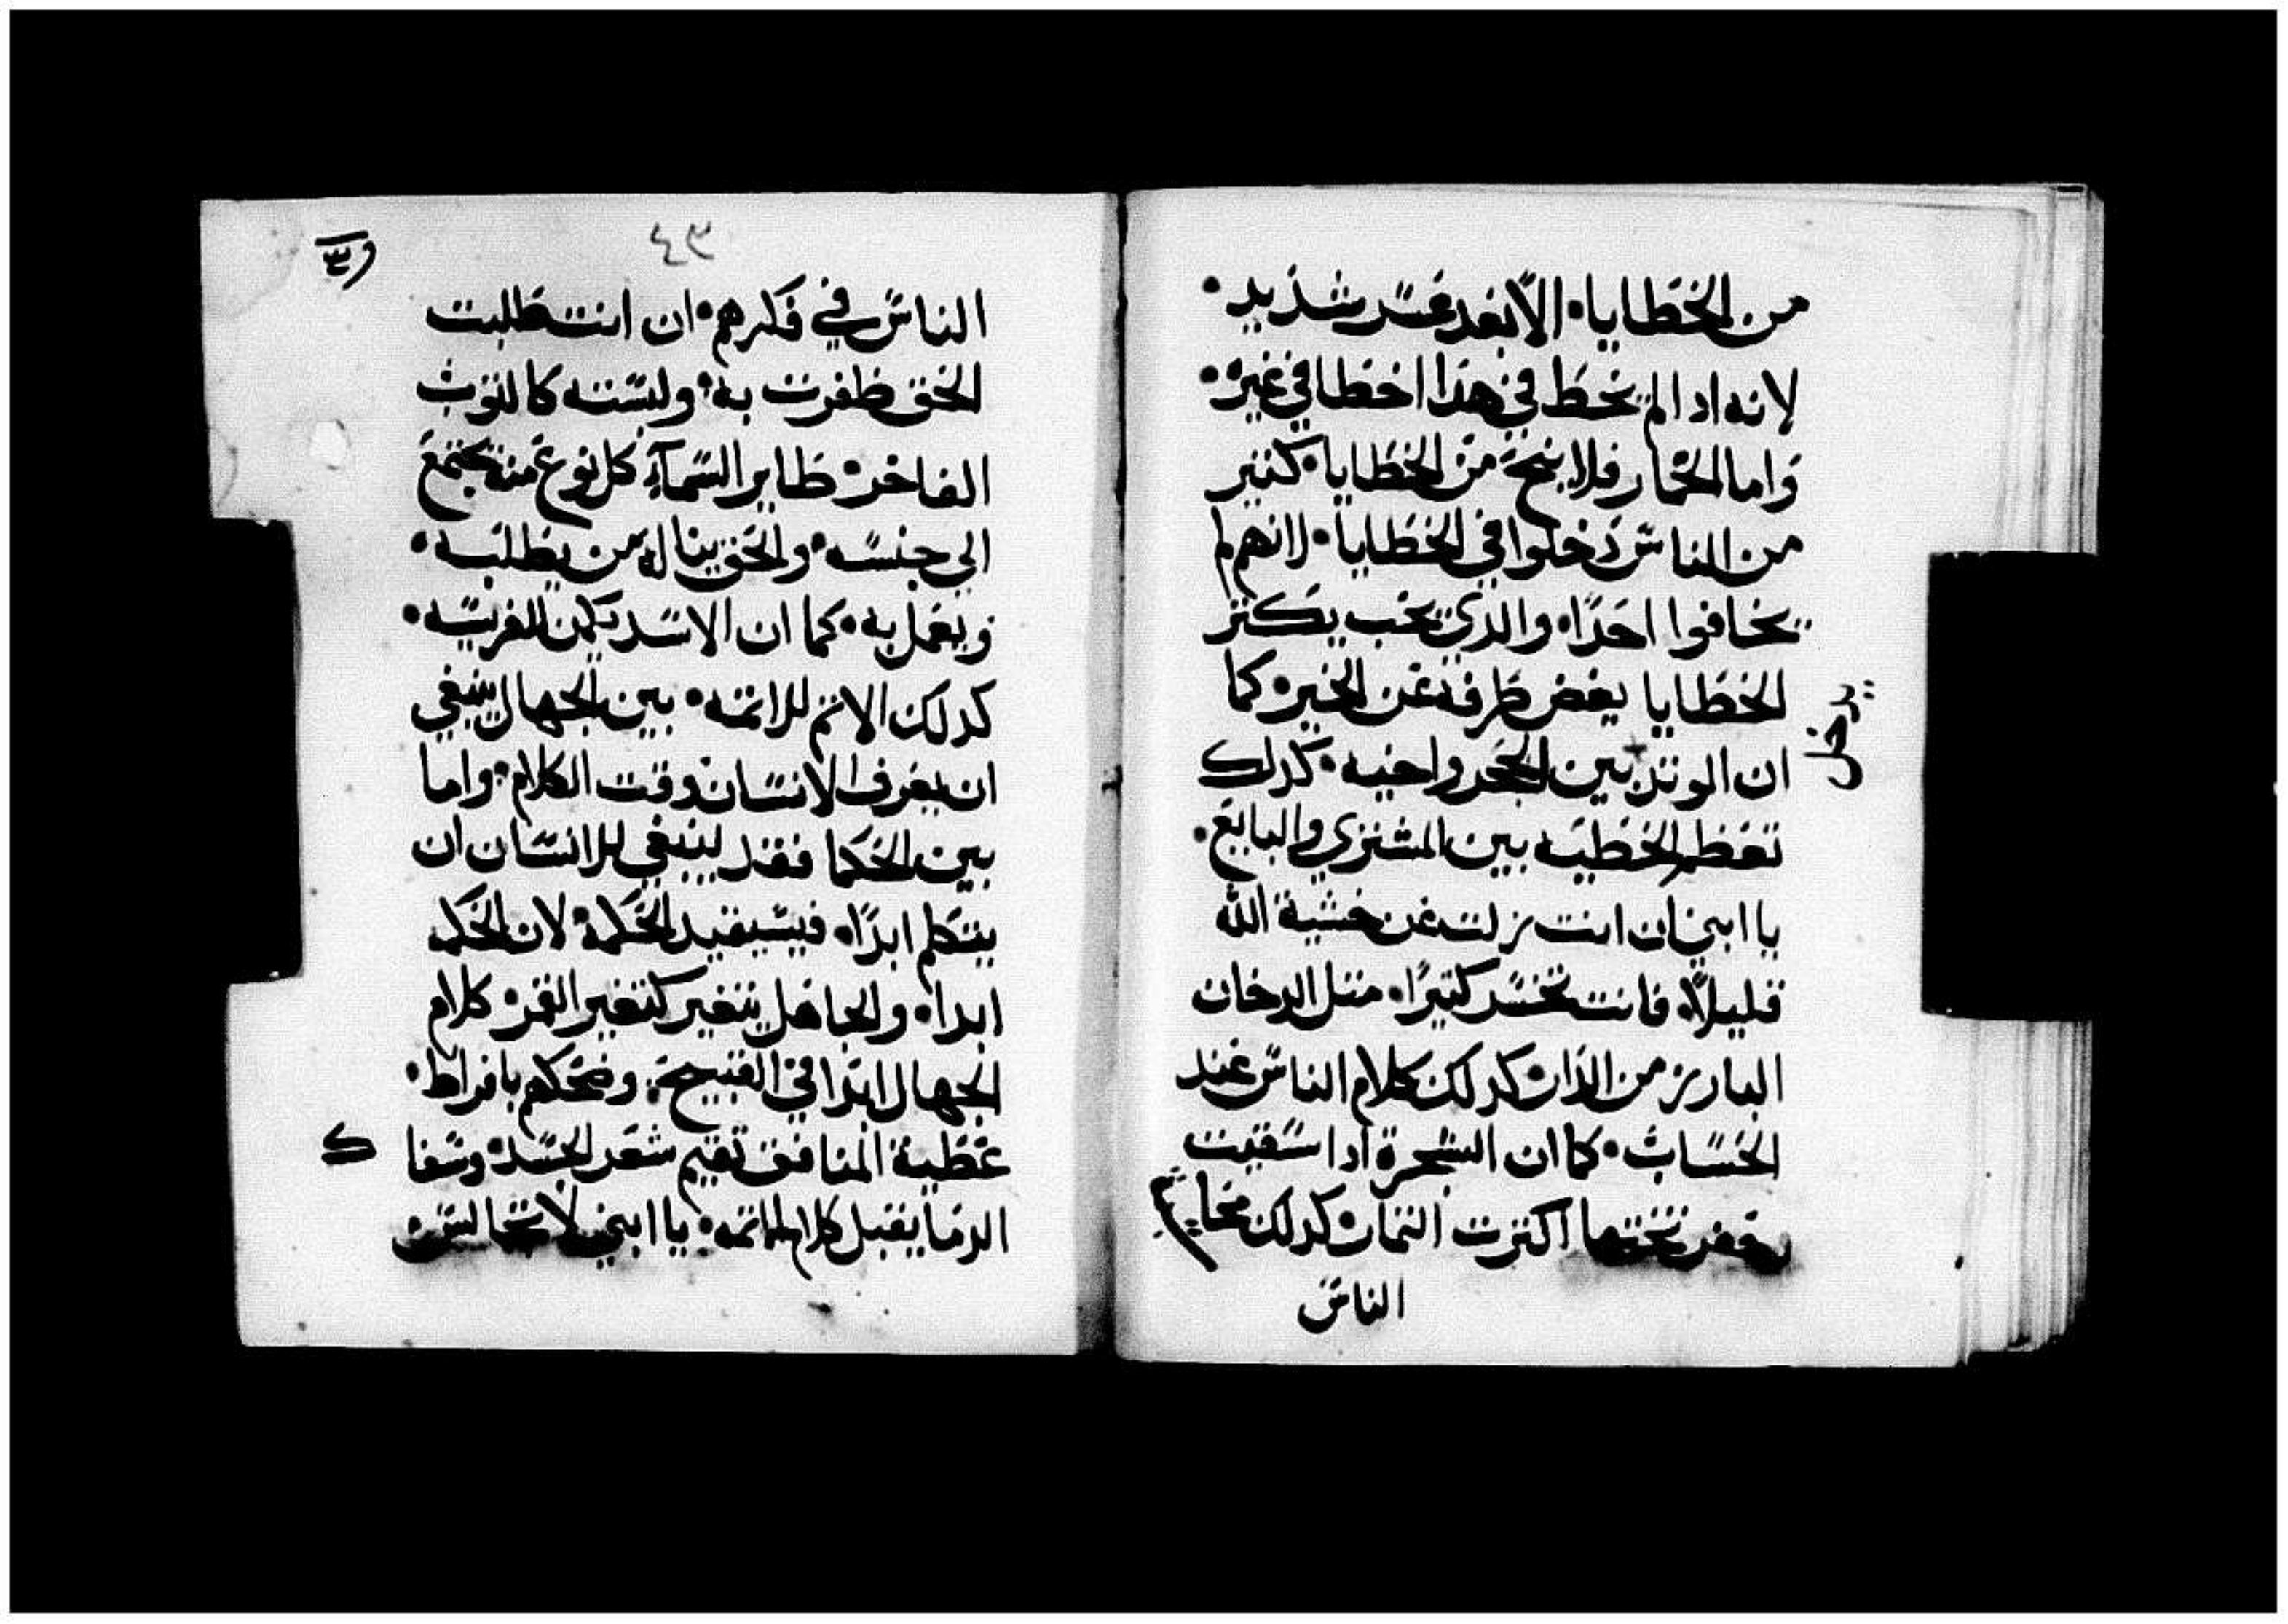 من الخطايا. الا بعد عسر شديد.
لانه ادا لم يخط في هذا اخطا في غيره.
واما الخمار فلا ينجح من الخطايا. كتير
من الناس دخلوا في الخطايا. لانهم لم
يخافوا احدًا. والدي يحب يكتر
الخطايا يغض طرفه عن الخير. كما
ان الوتد بين الحجر واخيه. كدلك
يدخل
تعظم الخطيه بين المشتري والبايع.
يا ابني ان انت زلت عن خشية الله
قليلاً. فانت تخسر كتيرًا. متل الدخان
البارز من النار. كدلك كلام الناس عند
الحساب. كما ان الشجرة ادا سقيت
تحتها اكترت التمار. كدلك
الناس
٤٣
الناس في فكرهم. ان انت طلبت
الحق ظفرت به. ولبسته كالتوب
الفاخر. طاير السمآء كل نوع منه يجتمع
الي جنسه. والحق ينال له من يطلبه.
ويعمل به. كما ان الاسد يكمن للفريسه.
كدلك الاتم للاتمه. بين الجهال ينبغي
ان يعرف الانسان وقت الكلام. واما
بين الحكما فقد ينبغي للانسان ان
يتكلم ابدًا. فيستفيد الحكمة. لان الحكم
ابدا. والجاهل يتغير كتغير القمر. كلام
الجهال ابدا في القبيحة. وضحكهم بافراط.
عطية المنافق تقيم شعر الجسد. وسفا
ك
الدما يقبل كلام الاتمه. يا ابني لا